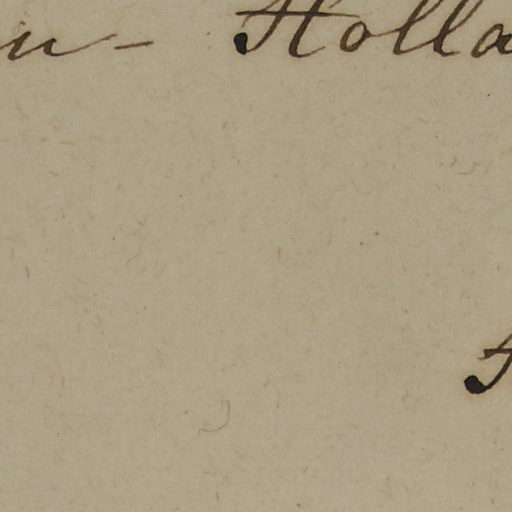 u - Holla